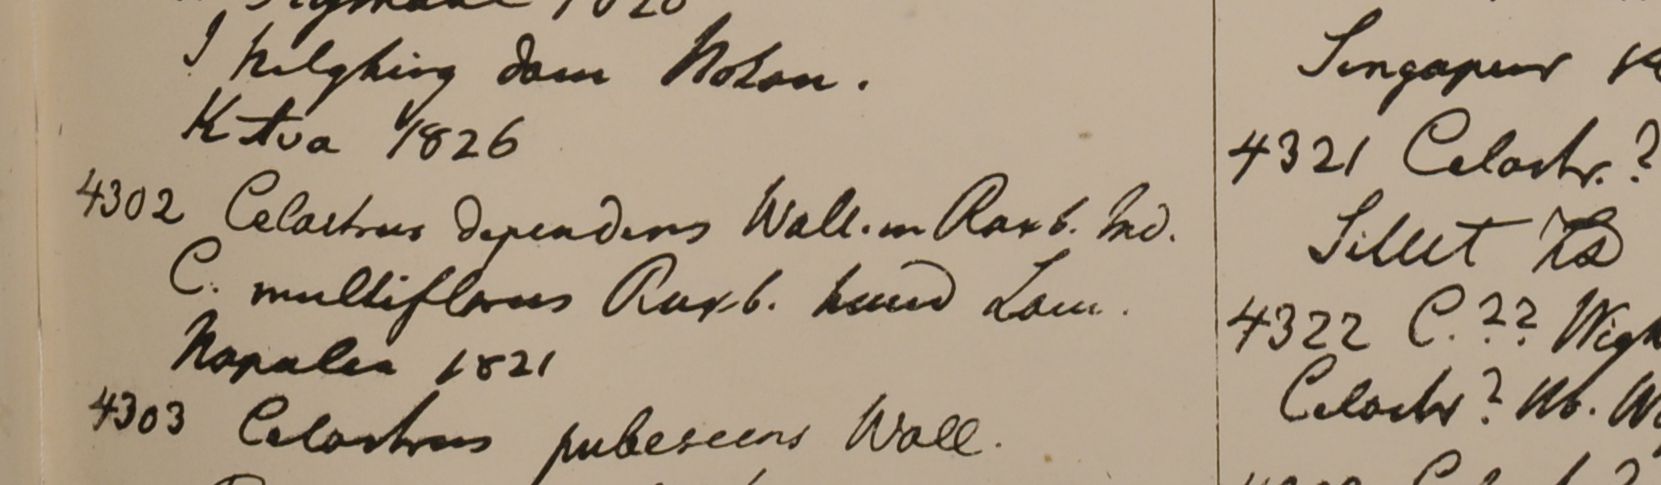 1826
I Nilghiry dom Noton.
Katva 1826
4302 Celastrus dependens Wall. in Roxb. Ind.
C. multiflorus Roxb. haud Lam.
Napalia 1821
4303 Celastrus pubescens Wall.
Singapur
4321 Celastr.?
Sillet
4322 C.?? Wigh
Celastr? Hb. W